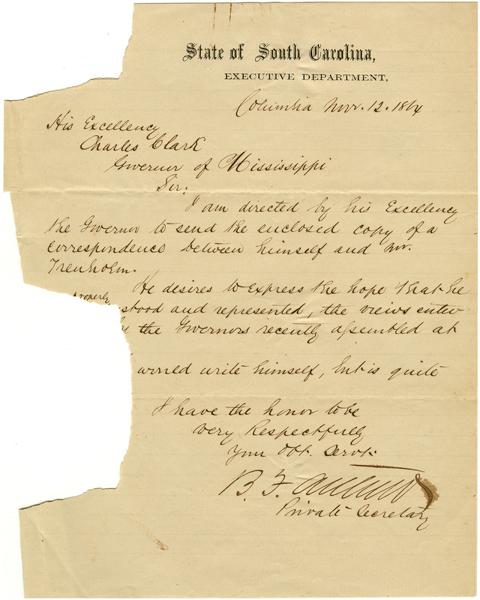 State of South Carolina,
EXECUTIVE DEPARTMENT,
Columbia Nov. 12. 1864
His Excellency
Charles Clark
Governor of Mississippi
Sir:
I am directed by his Excellency
the Governor to send the enclosed copy of a
correspondence between himself and Mr.
Trenholm.
He desires to express the hope that he
properly
stood and represented, the views enter
the Governors recently assembled at
would write himself, but is quite
I have the honor to be
very Respectfully
Your Obt. Servt.
B. F.
Private Secretary